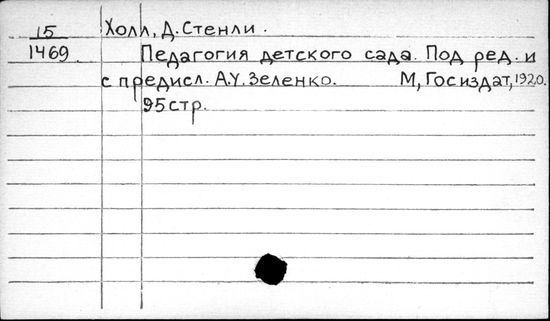 15 Холл, Д. Стенли.
1469 Педагогия детского сада. Под ред. и
с предисл. А.У. Зеленко. М, Госиздат, 1920.
95 стр.